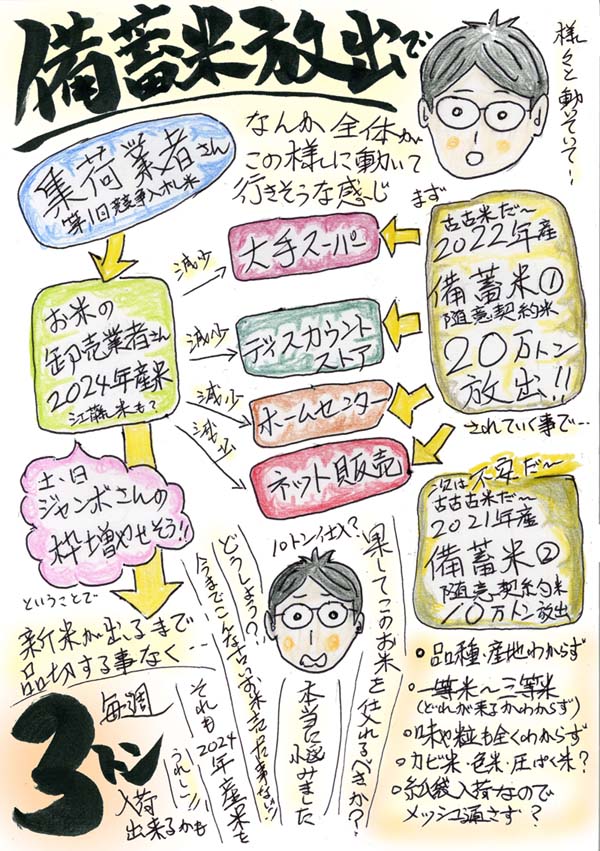 備蓄米放出で
様々と動いていて!
なんか全体が
この様しに動いて
行きそうな感じ
まず
集荷業者さん
第1回競争入札米
減少
大手スーパー
古古米だ〜
2022年産
備蓄米①
随意契約米
20万トン
放出!!
されていく事で…
お米の
卸売業者さん
2024年産米
江藤米も?
減少
ディスカウント
ストア
減少
ホームセンター
減少
ネット販売
土、日
ジャンボさんの
枠増やせそう!!
次は不安だ〜
古古古米だ〜
2021年産
備蓄米②
随意契約米
10万トン放出
ということで
新米が出るまで
品切する事なく…
毎週
3トン
入荷
出来るかも
10トン仕入?
果してこのお米を仕入れるべきか?
本当に悩みました
どうしよう?
今までこんな古いお米売った事ない!!
それも2024年産米を
うれしい!!
○品種・産地わからず
○一等米〜三等米
(どれが来るかわからず)
○味や粒も全くわからず
○カビ米・色米・圧ぱく米?
○紙袋入荷なので
メッシュ通さず?